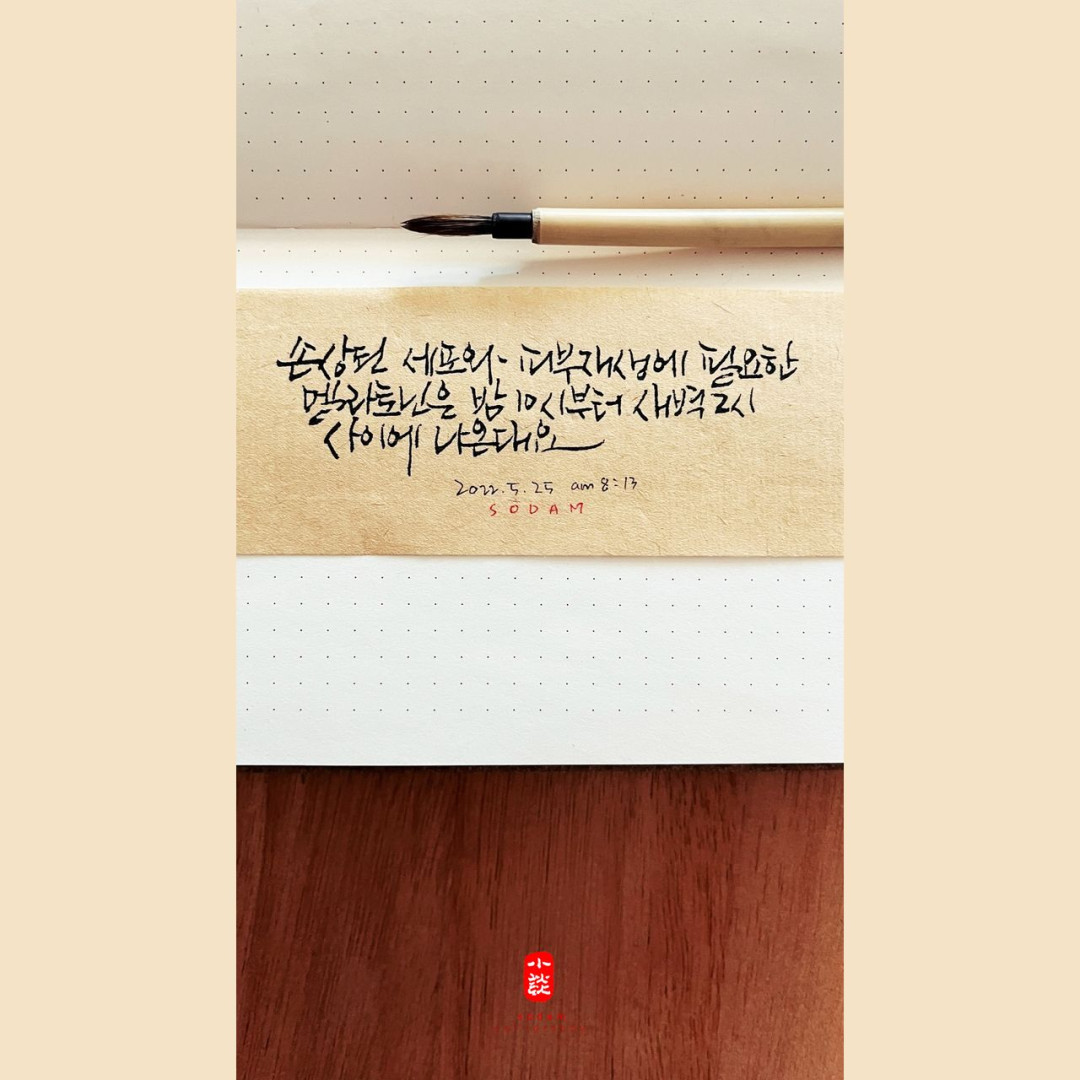 손상된 세포와 피부재생에 필요한
멜라토닌은 밤 10시부터 새벽 2시
사이에 나온대요
2022.5.25 am 8:13
SODAM
小談